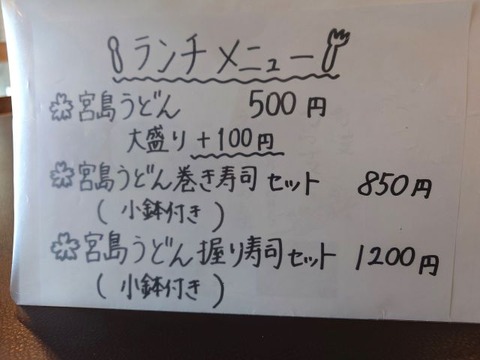 ランチメニュー
宮島うどん 500円
大盛り+100円
宮島うどん巻き寿司セット 850円
(小鉢付き)
宮島うどん握り寿司セット 1200円
(小鉢付き)